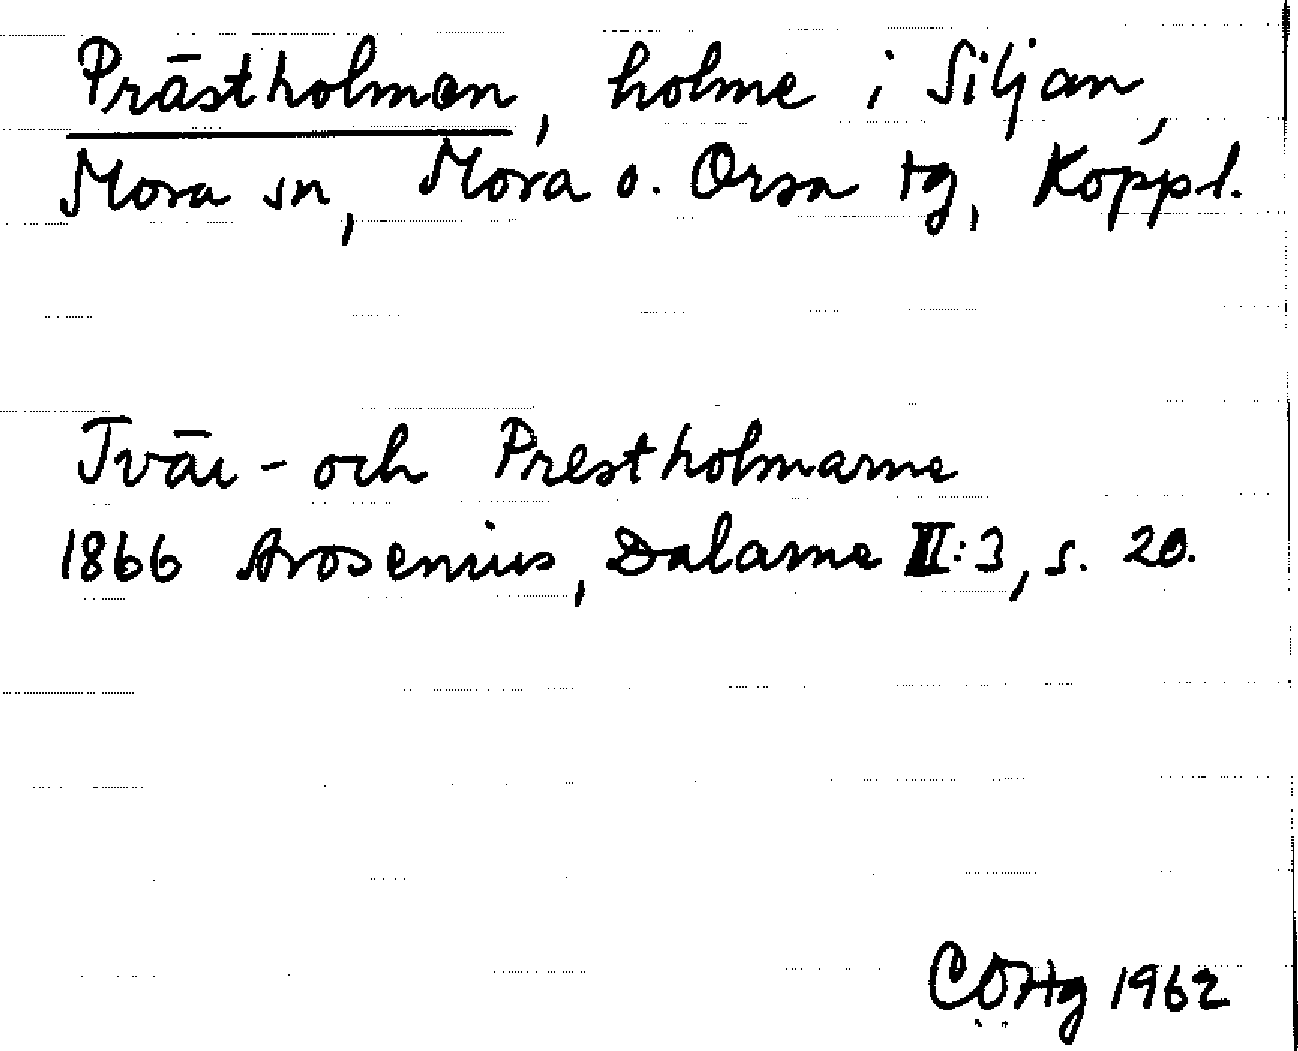 Prästholmen, holme i Siljan,
Mora sn, Mora o. Orsa tg, Koppl.
Tvär- och Prestholmarne
1866 Arosenius, Dalarne II:3, s. 20.
CÖHg 1962